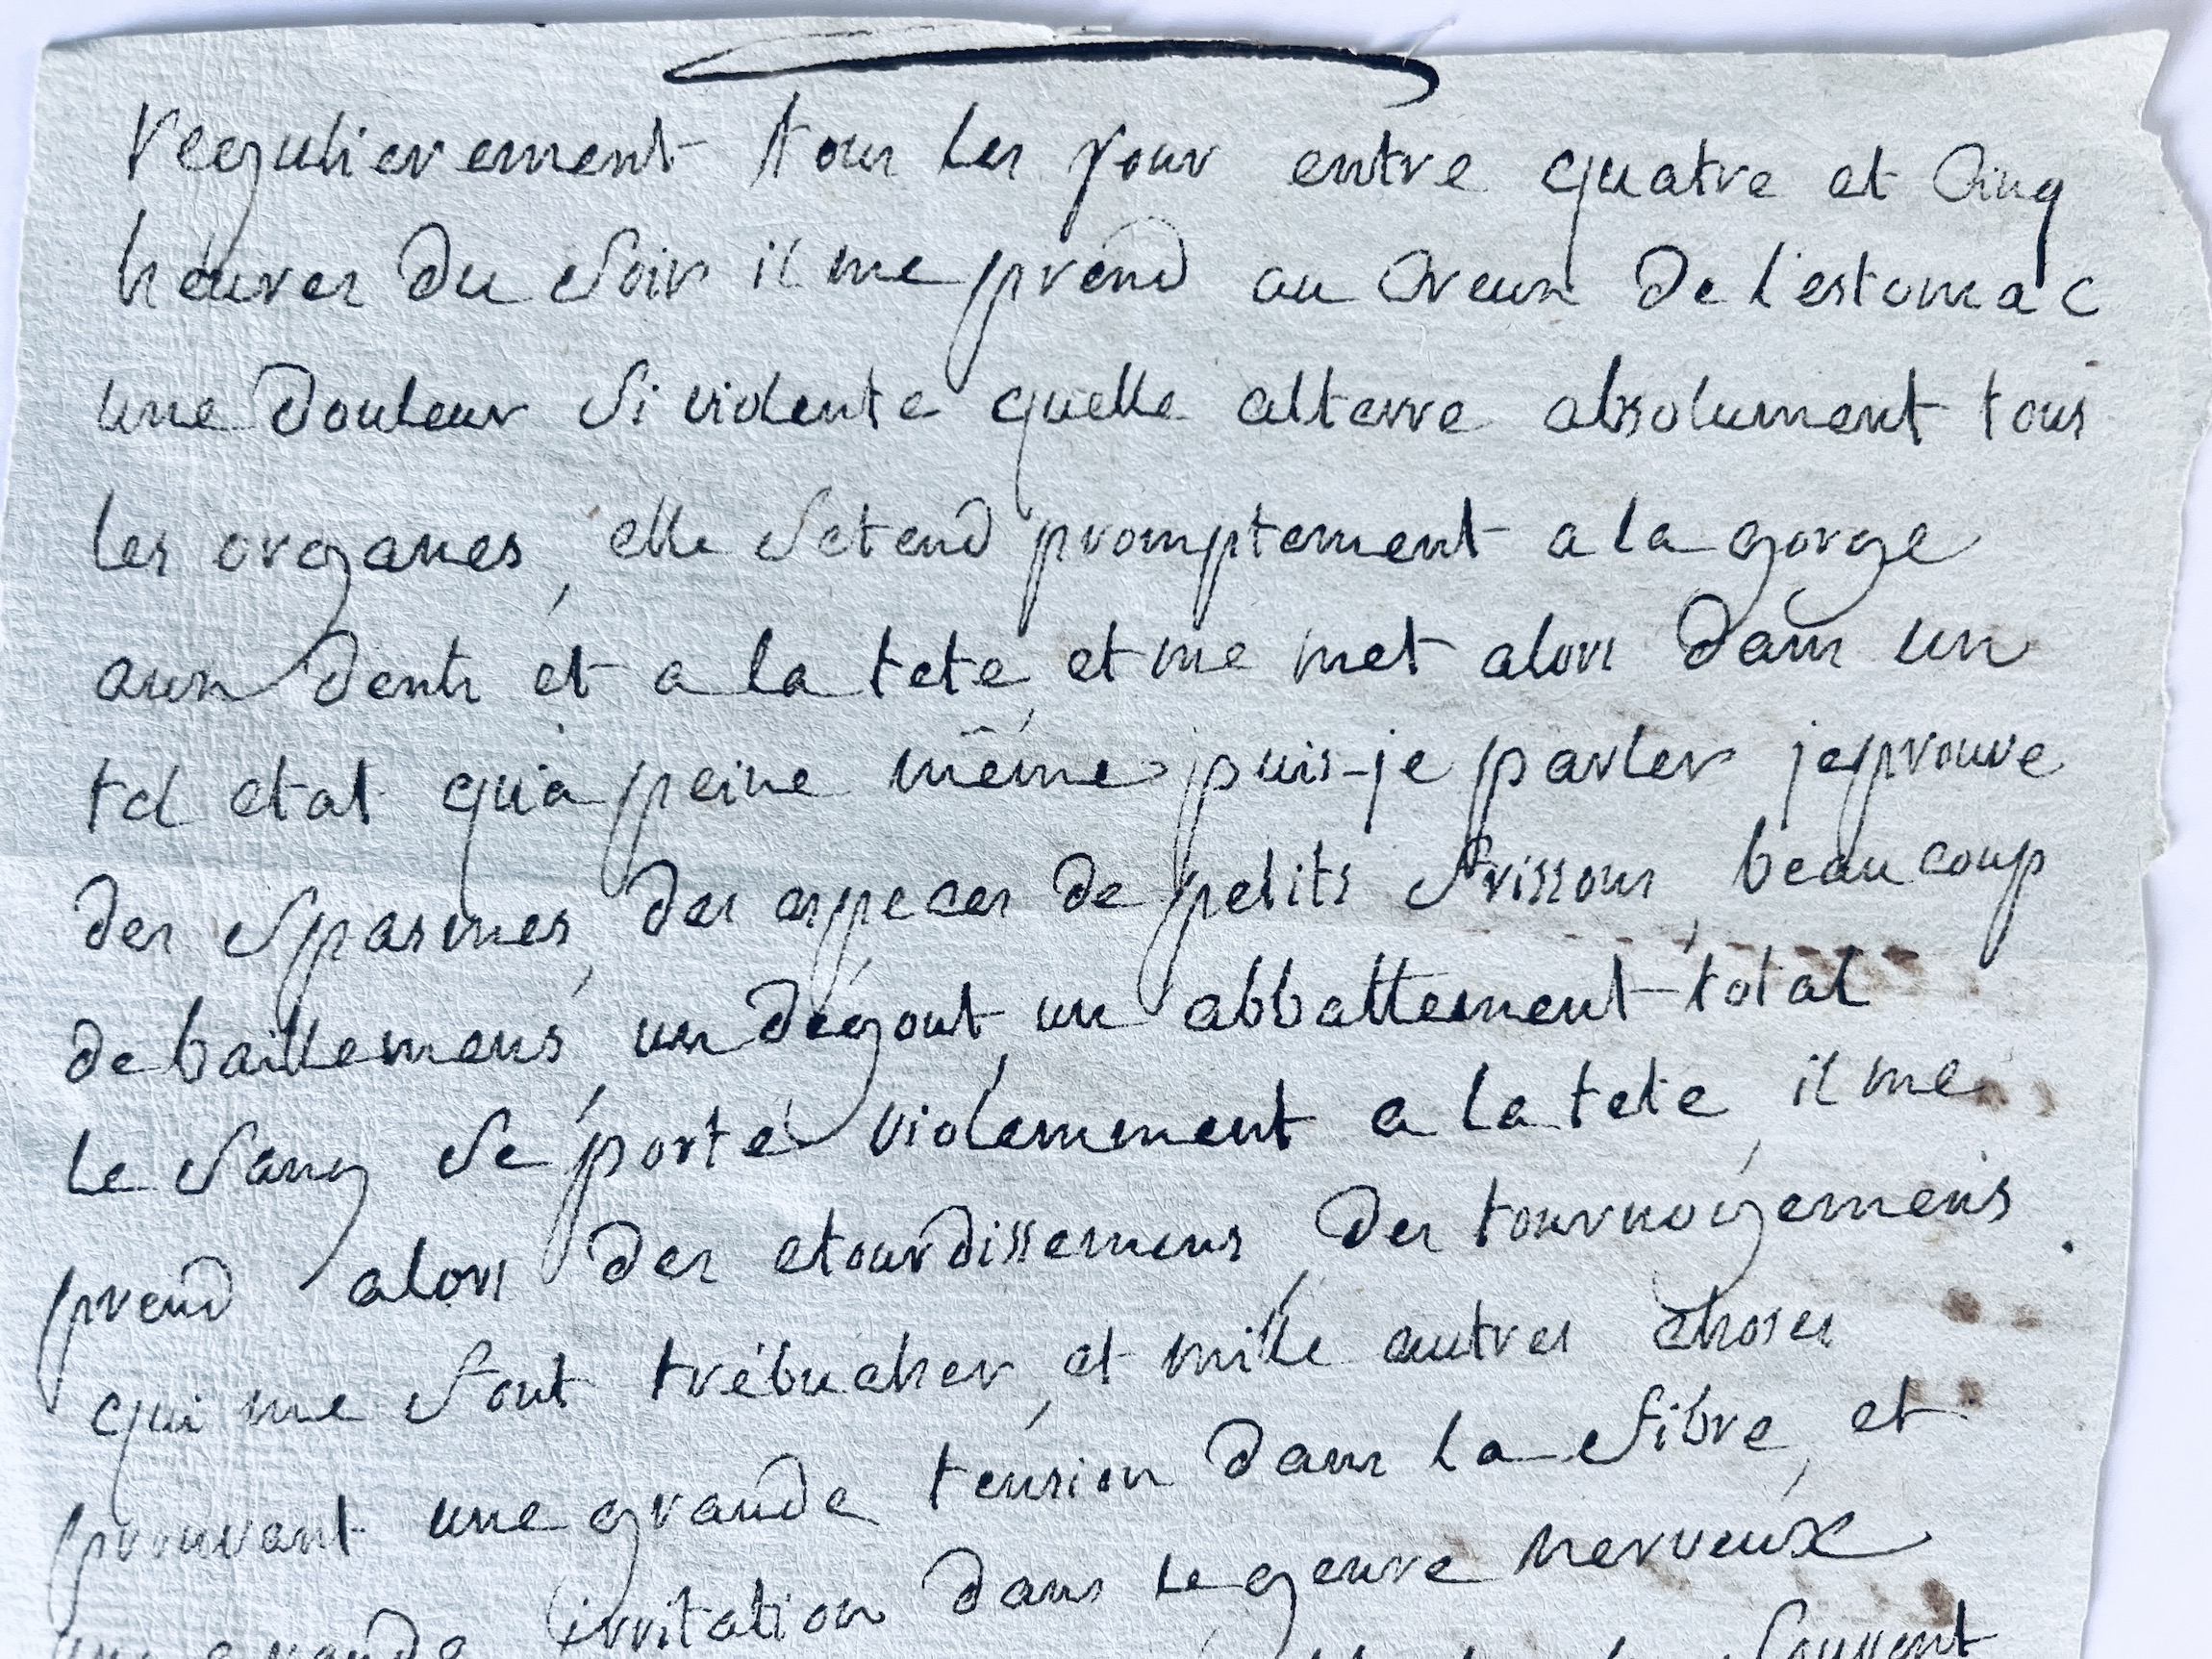 regulierement tous les jour entre quatre et cinq
heures du soir il me prend au creux de l'estomac
une douleur si violente quelle alterre absolument tous
les organes, elle setend promptement a la gorge
aux dents et a la tete, et me met alors dans un
tel etat qu'a peine même puis-je parler jeprouve
des spasmes, des especes de petits frissons, beaucoup
de baillemens, un dégout, un abbattement total
le sang se porte violemment a la tete, il me
prend alors des etourdissemens, des tournoyemens
qui me font trébucher, et mille autres choses
prouvant une grande tension dans la fibre, et
une grande irritation dans le genre nerveux
souvent